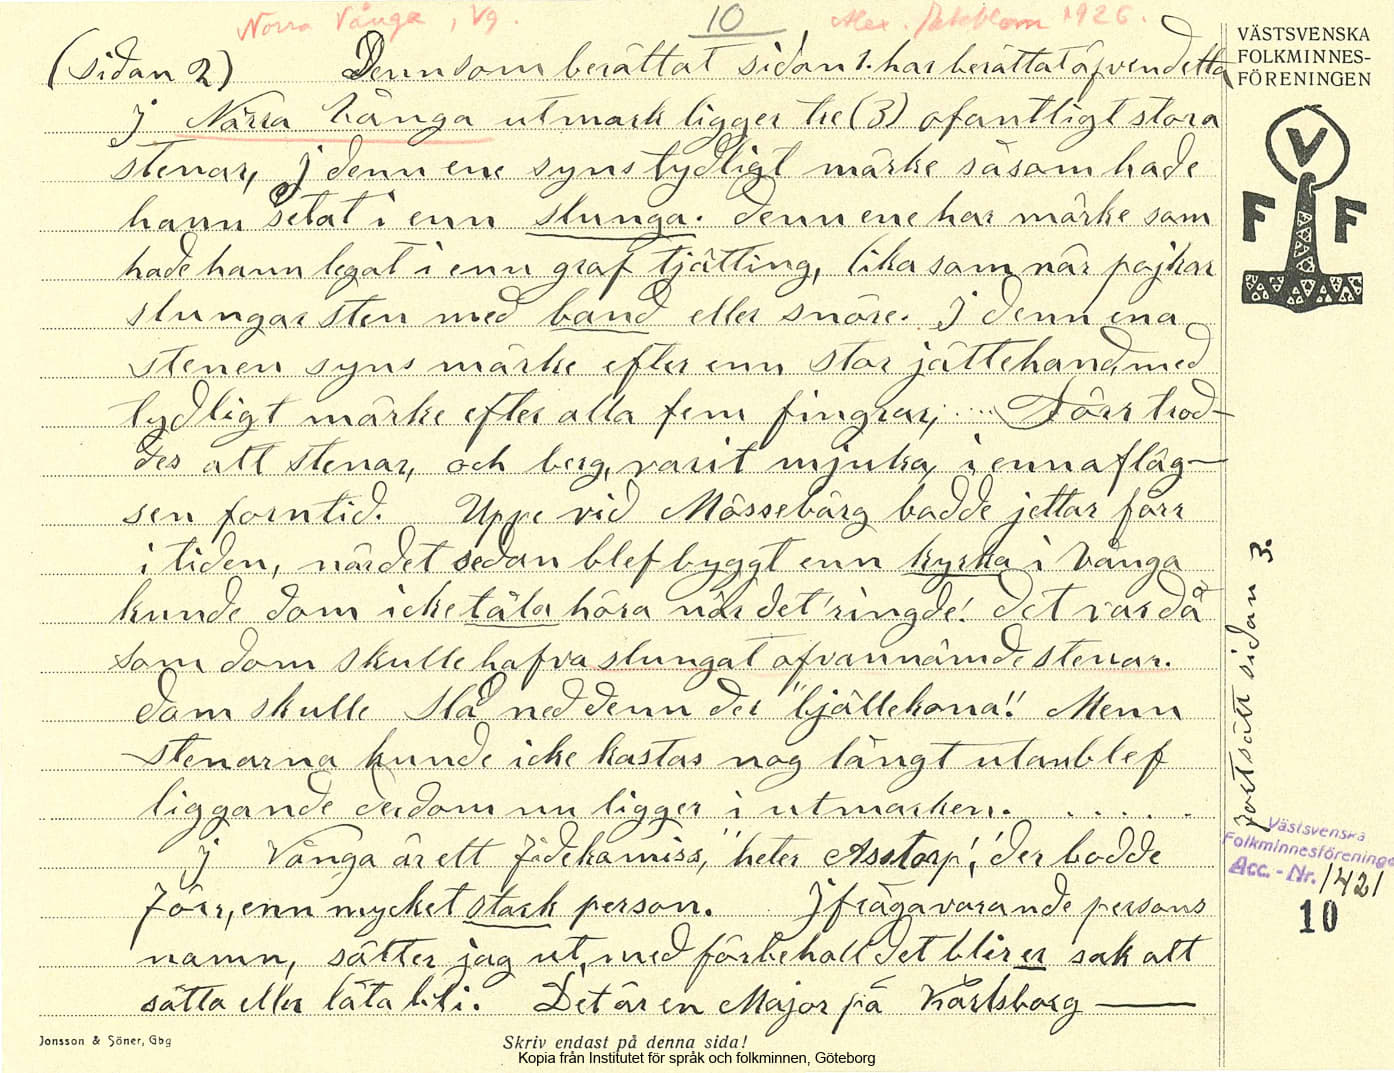 Norra Vånga, Vg. 10 Alex. 1926.
VÄSTSVENSKA
FOLKMINNES-
FÖRENINGEN
V
F F
(sidan 2) Denn som berättat sidan 1. har berättat äfven detta
J Norra Vånga utmark ligger tre (3) ofantligt stora
stenar, j denn ene syns tydligt märke såsom hade
hann setat i enn slunga. denn ene har märke som
hade hann legat i enn graf tjätting, lika som når pojkar
slungar sten med band eller snöre. J denn ena
stenen syns märke efter enn stor jättehand, med
tydligt märke efter alla fem fingrar, .... Förr trod-
des att stenar, och berg, varit mjuka, i enn afläg-
sen forntid. Uppe vid Mössebärg bodde jettar förr
i tiden, när det sedan blef byggt enn kyrka i Vånga
kunde dom icke tåla höra när det 'ringde'. det var då
som dom skulle hafva slungat ofvannämde stenar.
dom skulle slå ned denn der "bjällekona"! Menn
stenarna kunde icke kastas nog långt utan blef
liggande der dom nu ligger i utmarken. ......
J Vånga är ett fidekomiss, "heter Asstorp", der bodde
förr, enn mycket stark person. J frågavarande persons
namn, sätter jag ut, med förbehåll det blir er sak att
sätta eller låta bli. Det är en Major på Karlsborg —
fortsätt sidan 3.
Västsvenska
Folkminnesföreningen
Acc. - Nr. 1421
10
Jonsson & Söner, Gbg
Skriv endast på denna sida!
Kopia från Institutet för språk och folkminnen, Göteborg